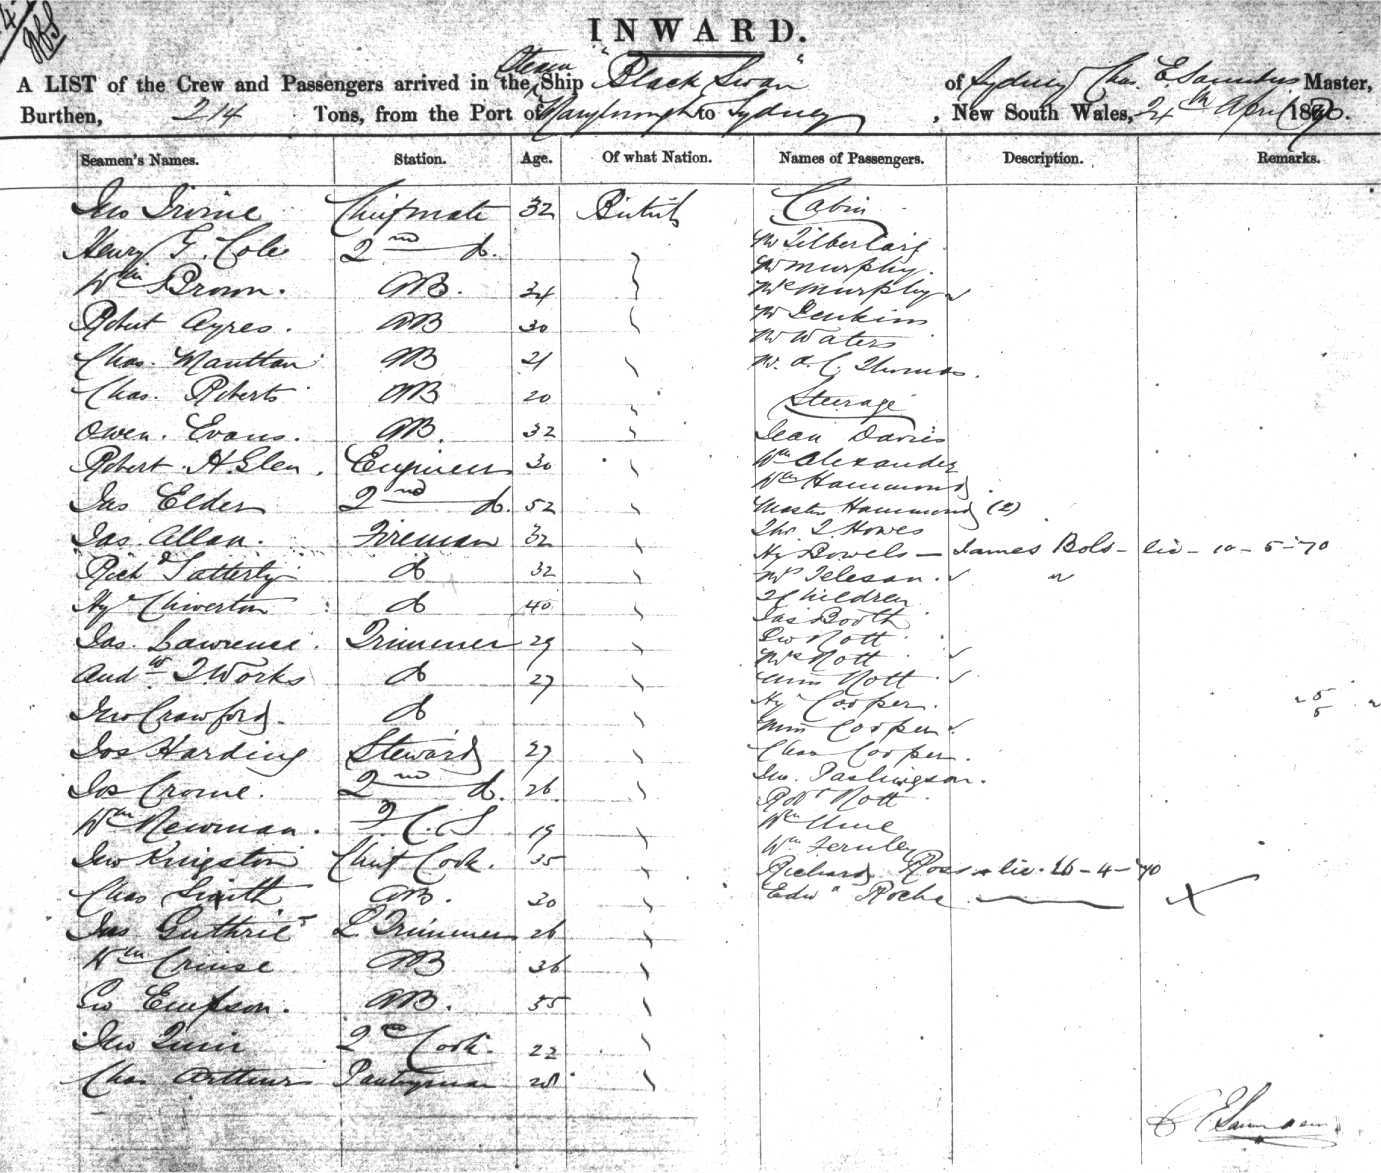 INWARD.
A LIST of the Crew and Passengers arrived in the Steam Ship "Black Swan" of Sydney Chas. E. Saunders Master,
Burthen, 214 Tons, from the Port of Maryborough to Sydney, New South Wales, 24th April 1870.
Seamen's Names. Station. Age. Of what Nation. Names of Passengers. Description. Remarks.
Jno Irvine Chief mate 32 British Cabin
Henry G. Cole 2nd do.
Mr Murphy.
Wm Brown. AB. 34 Mrs Murphy
Robert Ayres. AB 30 Mr Jenkins
Mr Waters
Chas. AB 21 Mr. A. C. Thomas.
Chas. Roberts AB 20 Steerage
Owen. Evans. AB. 32 Jean Davies
Robert H. Glen. Engineer 30 Wm Alexander
Wm Hammond
Jas Elder 2nd do. 52 Master Hammond (2)
Jas Allan. Fireman 32 Thos. T Howes
Hy Bowels - James Bols - liv - 10 - 5 - 70
Richd Tatterly do 32
Hy Chiverton do 40 2 Children
Jas Booth
Jas. Lawrence. Trimmer 29 Geo Nott
Mrs Nott
Andw T Works do 27 Miss Nott
Jno Crawford. do Hy Cooper.
Miss Cooper
Jos Harding Steward 27 Chas Cooper.
Jos Crome. 2nd do. 26 Robt Nott
Wm Newman. F. C. S 19 Wm
Wm Fernley
Jno Kingston Chief Cook. 35 Richard Ross - liv. 26 - 4 - 70
Chas Smith AB. 30 Edwd Roche
Jas Guthrie L Trimmer 26
Wm Cruise AB 36
Geo Empson. AB. 35
Jno Quin 2nd Cook. 22
Chas Arthurs Pantryman 28
C E Saunders